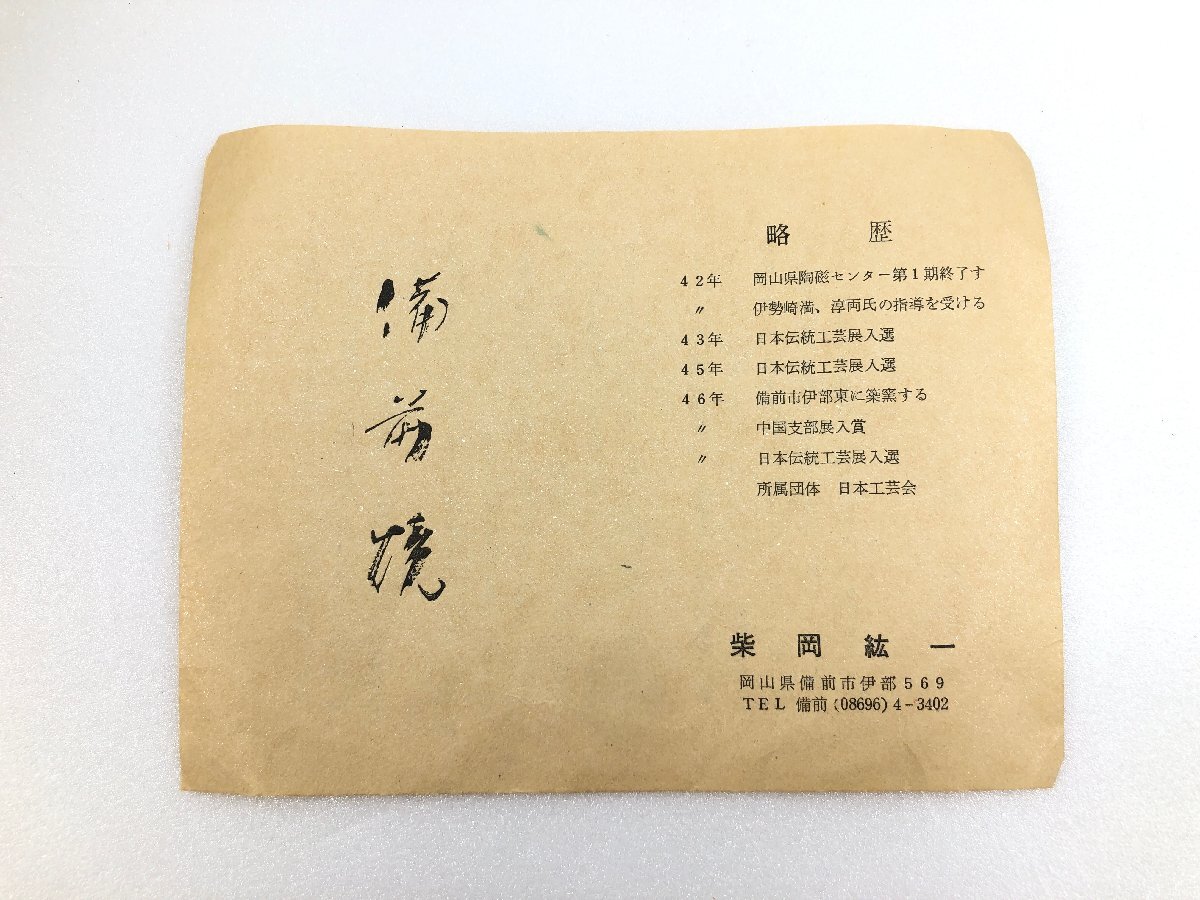 備前焼
略歴
42年 岡山県陶磁センター第1期終了す
〃 伊勢崎満、淳両氏の指導を受ける
43年 日本伝統工芸展入選
45年 日本伝統工芸展入選
46年 備前市伊部東に築窯する
〃 中国支部展入賞
〃 日本伝統工芸展入選
所属団体 日本工芸会
柴岡紘一
岡山県備前市伊部569
TEL 備前(08696)4-3402